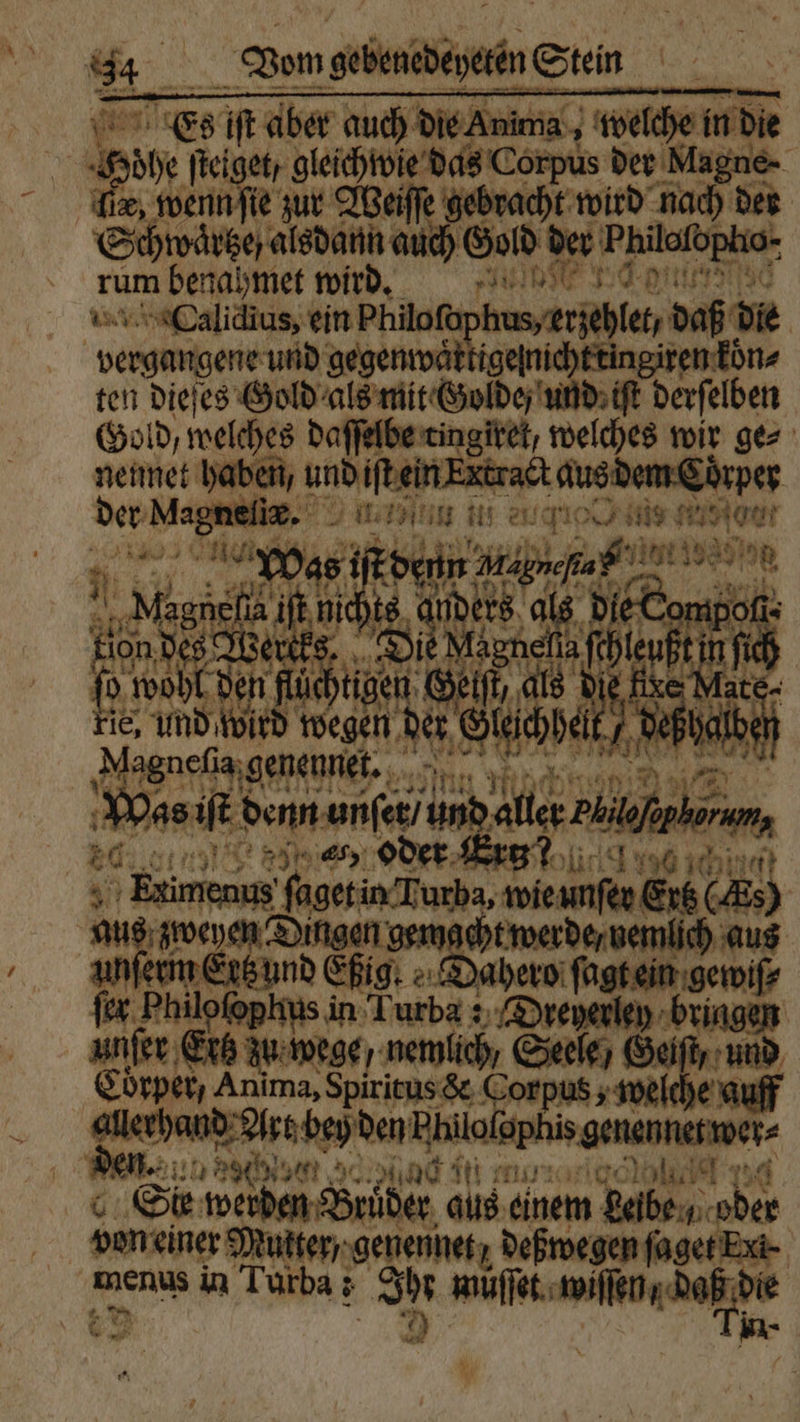 34 Vom gebenedeyeten Stein
Es iſt aber auch die Anima, welche in die
Höhe ſteiget, gleichwie das Corpus der Magne-
ſiæ, wenn ſie zur Weiſſe gebracht wird nach der
Schwärtze, alsdann auch Gold der Philoſopho-
rum benahmet wird.
Calidius, ein Philoſophus, erzehlet, daß die
vergangene und gegenwärtige nicht tingiren kön-
ten dieſes Gold als mit Golde, und iſt derſelben
Gold, welches daſſelbe tingiret, welches wir ge-
nennet haben, und iſt ein Extract aus dem Cörper
der Magneſiæ.
Was iſt denn Magneſia?
Magneſia iſt nichts anders als die Compoſi-
tion des Wercks. Die Magneſia ſchleußt in ſich
ſo wohl den flüchtigen Geiſt, als die fixe Mate-
rie, und wird wegen der Gleichheit, deßhalben
Magneſia genennet.
Was iſt denn unſer, und aller Philoſophorum,
æs, oder Ertz?
Eximenus ſaget in Turba, wie unſer Ertz (Æs)
aus zweyen Dingen gemacht werde, nemlich aus
unſerm Ertz und Eßig. Dahero ſagt ein gewiſ-
ſer Philoſophus in Turba: Dreyerley bringen
unſer Ertz zu wege, nemlich, Seele, Geiſt, und
Cörper, Anima, Spiritus & Corpus, welche auff
allerhand Art bey den Philoſophis genennet wer-
den.
Sie werden Brüder aus einem Leibe, oder
von einer Mutter, genennet, deßwegen ſaget Exi-
menus in Turba: Ihr müſſet wiſſen, daß die
D Tin-